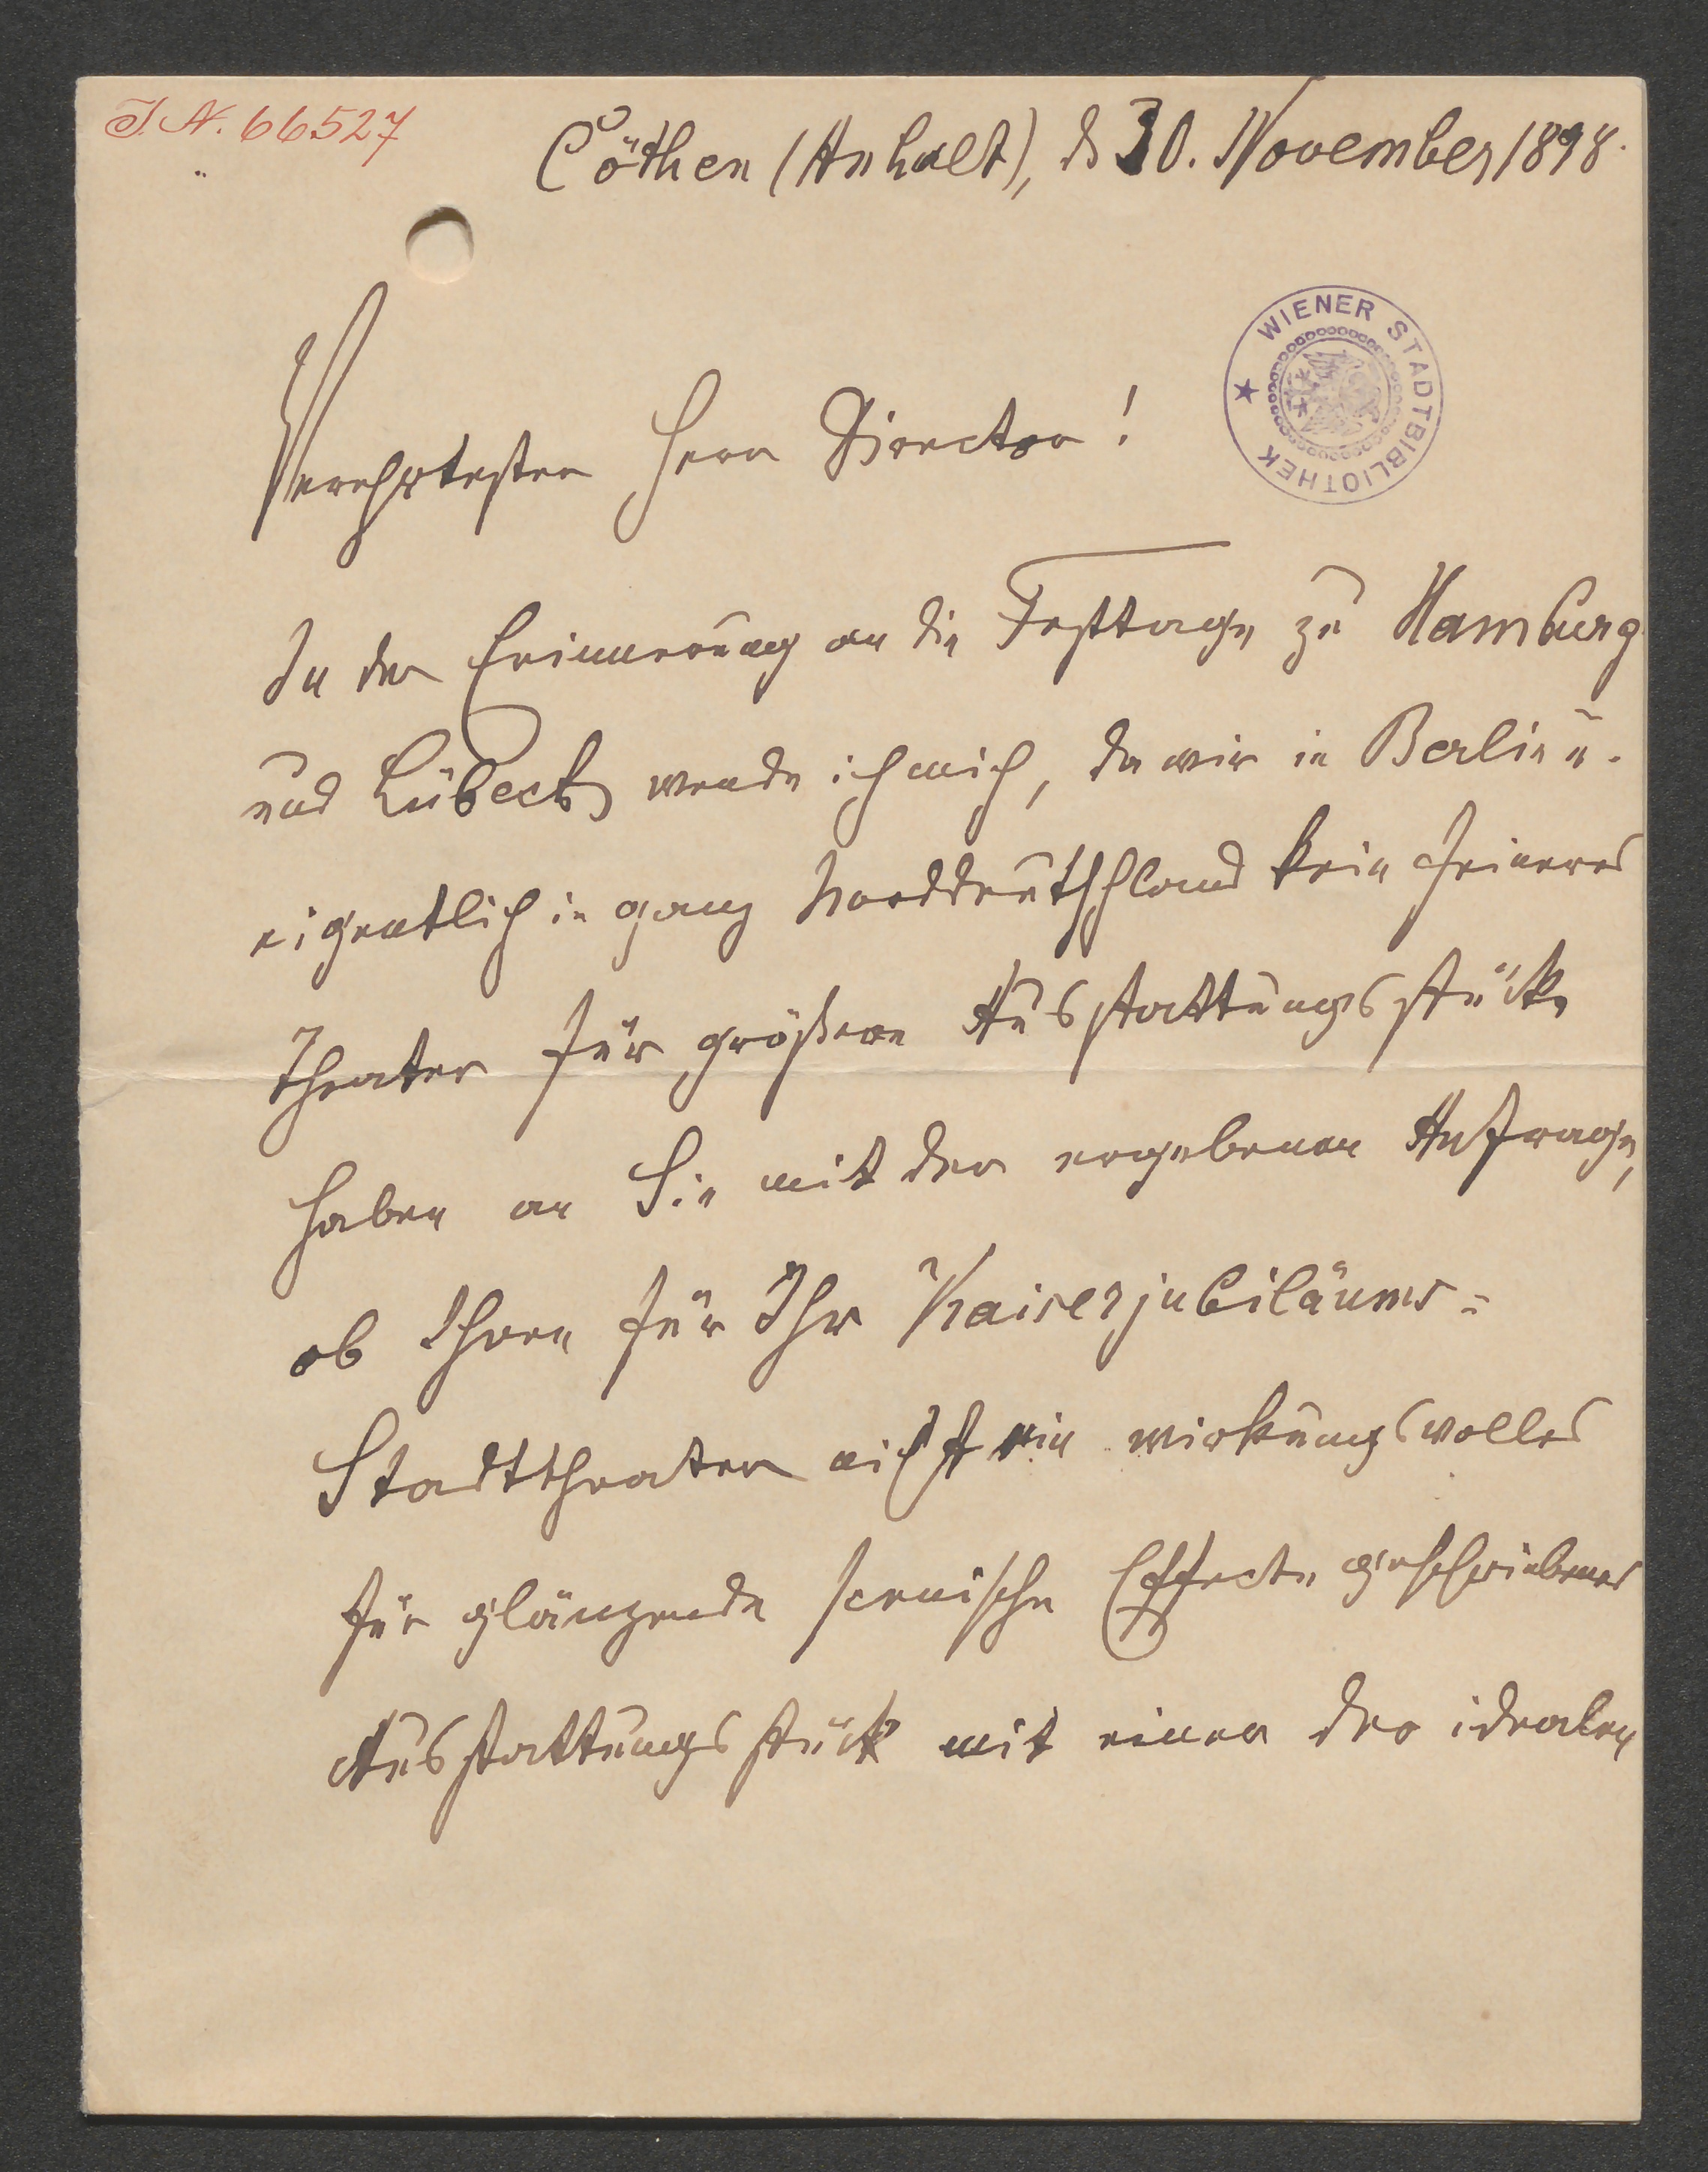 I. N. 66527
Cöthen (Anhalt), d 30. November 1898.
WIENER STADTBIBLIOTHEK
Verehrtester Herr Director!
In der Erinnerung an die Festtage zu Hamburg
und Lübeck wende ich mich, da wir in Berlin u.
eigentlich in ganz Norddeutschland kein feineres
Theater für größere Ausstattungsstücke
haben an Sie mit der ergebenen Anfrage,
ob Ihnen für Ihr Kaiserjubiläums-
Stadttheater nicht ein wirkungsvolles
für glänzende scenische Effecte geschriebenes
Ausstattungsstück mit einer der idealen